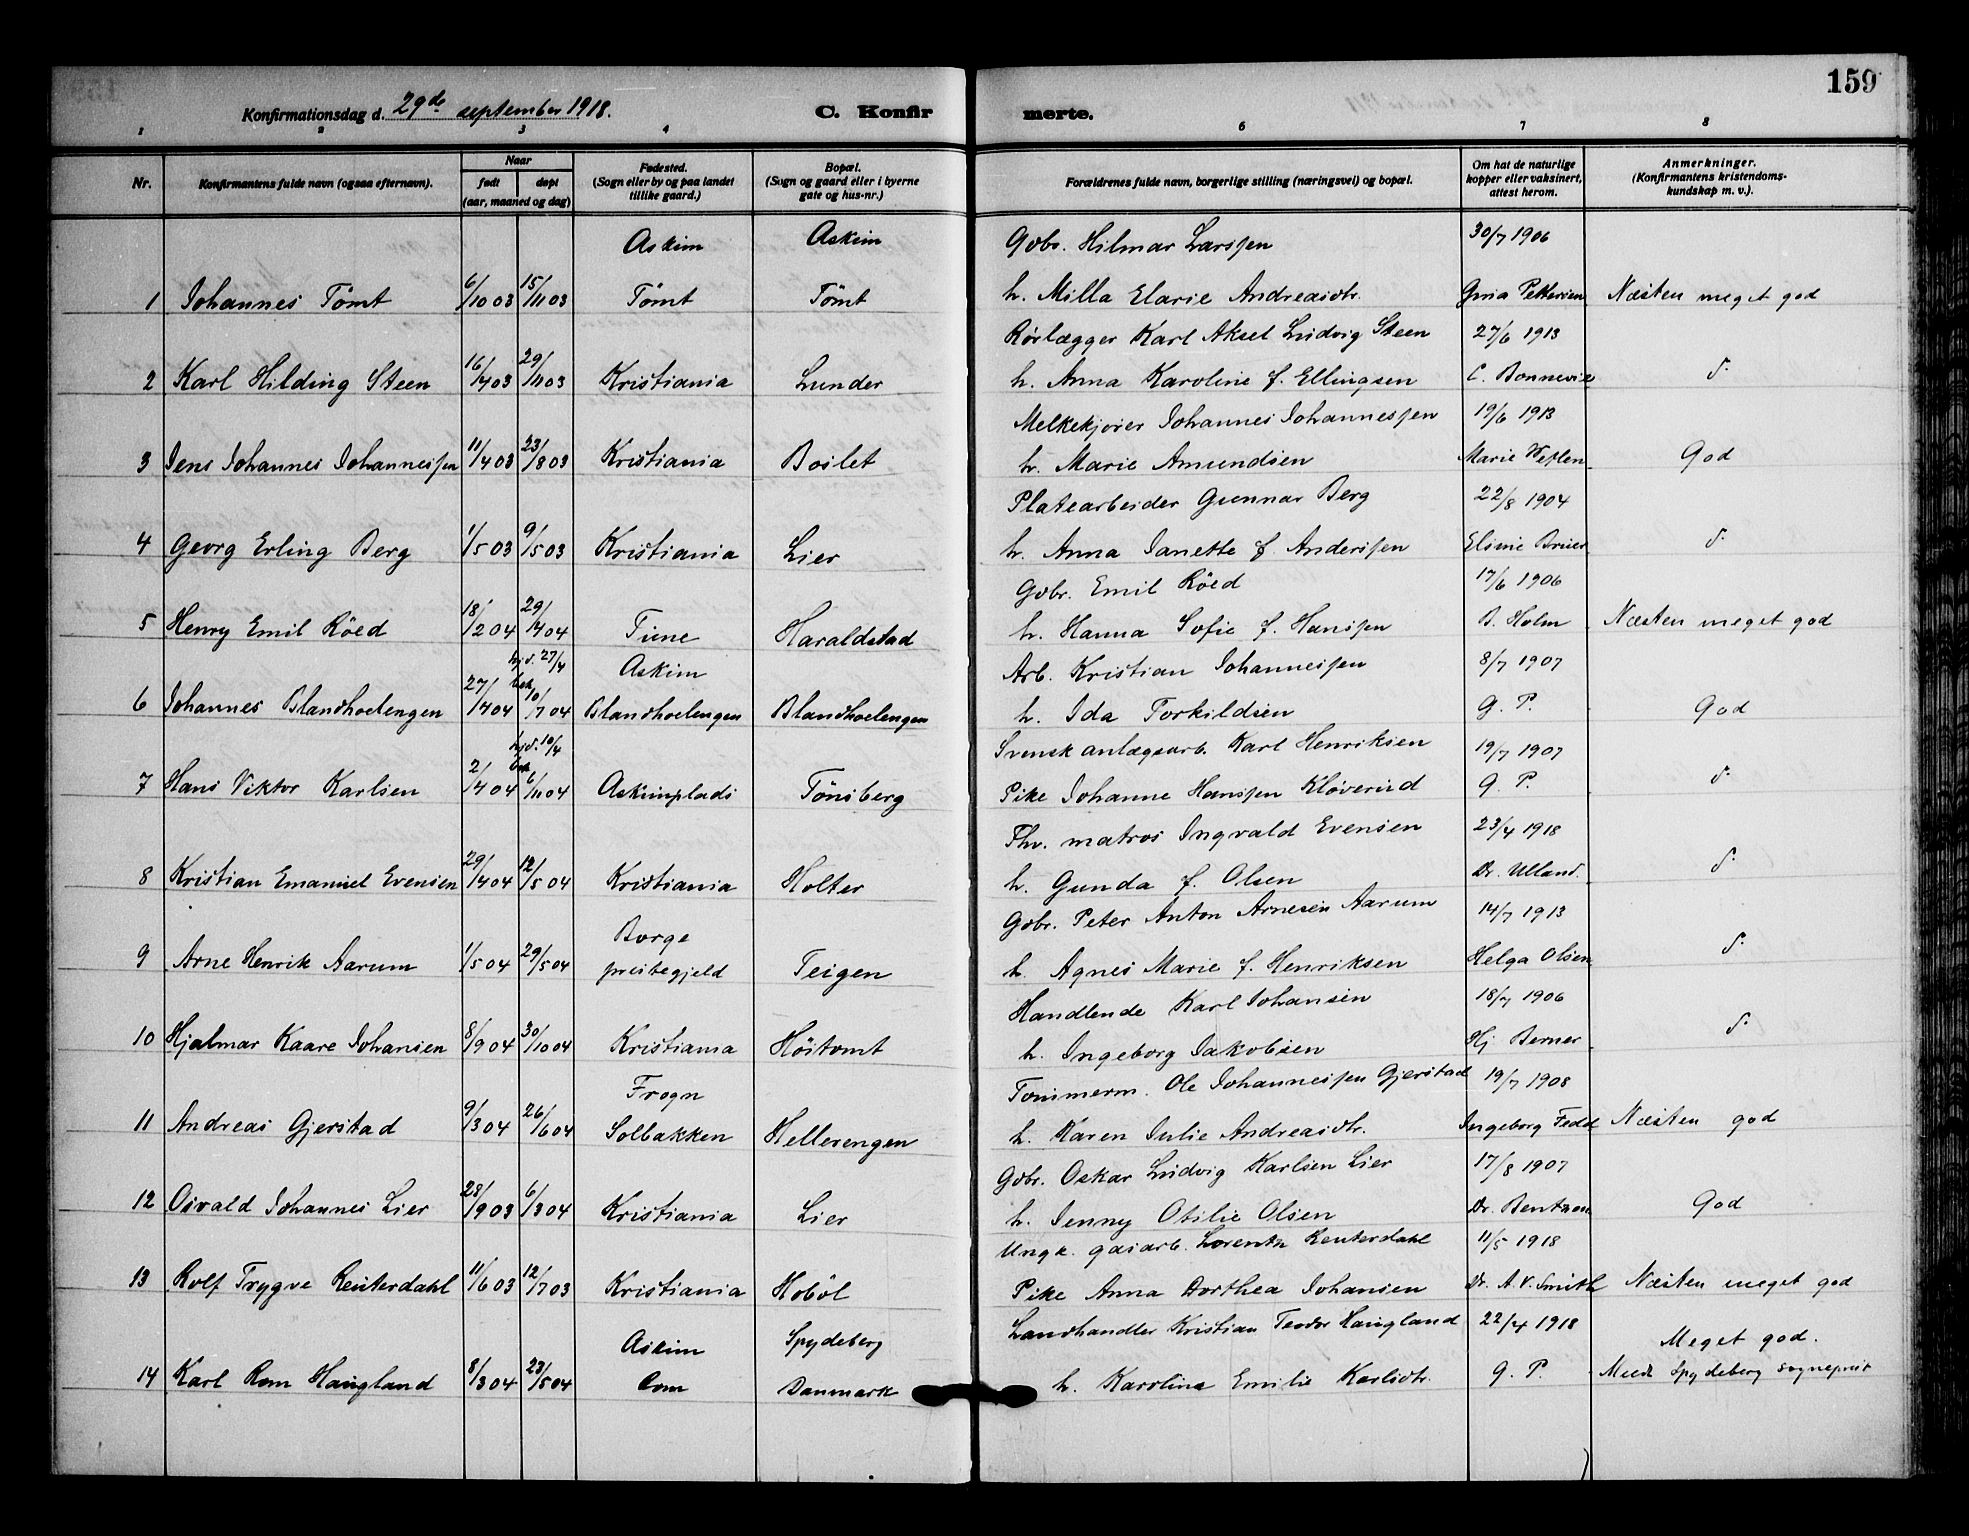 159
Konfirmationsdag d. 29de september 1918.
C. Konfirmerte.
1 2 3 4 6 7 8
Nr.
Konfirmantens fulde navn (ogsaa efternavn).
Naar
født
døpt
(aar, maaned og dag)
Fødested.
(Sogn eller by og paa landet
tillike gaard.)
Bopæl.
(Sogn og gaard eller i byerne
gate og hus-nr.)
Forældrenes fulde navn, borgerlige stilling (næringsvei) og bopæl.
Om hat de naturlige
kopper eller vaksinert,
attest herom.
Anmerkninger.
(Konfirmantens kristendoms-
kundskap m. v.).
Askim Askim Gdbr. Hilmar Larssen 30/7 1906
1 Johannes Tömt 6/10 03 15/11 03 Tömt Tömt h. Milla Elarie Andreasdtr. Gina Pettersen Næsten meget god
Rørlægger Karl Aksel Ludvig Steen 27/6 1913
2 Karl Hilding Steen 16/4 03 29/11 03 Kristiania Lunder h. Anna Karoline f. Ellingsen C. Bonnevie d.
Melkekjører Johannes Johannessen 19/6 1913
3 Jens Johannes Johannessen 11/4 03 23/8 03 Kristiania Boslet h. Marie Amundsen Marie Weflen God
Platearbeider Gunnar Berg 22/8 1904
4 Georg Erling Berg 1/5 03 9/5 03 Kristiania Lier h. Anna Janette f. Anderssen Elsine Bruer d.
Gdbr. Emil Röed 17/6 1906
5 Henry Emil Röed 18/2 04 29/4 04 Tune Haraldstad h. Hanna Sofie f. Hanssen B. Holm Næsten meget god
hjd. 27/4 Askim Arb. Kristian Johannessen 8/7 1907
6 Johannes Blandhoelengen 27/4 04 bek. 10/7 04 Blandhoelengen Blandhoelengen h. Ida Torkildsen G. P. God
hjd. 10/4 Svensk anlægsarb. Karl Henriksen 19/7 1907
7 Hans Viktor Karlsen 2/4 04 bek. 6/11 04 Askimplads Tönsberg Pike Johanne Hanssen Kløverud G. P. d.
Fhv. matros Ingvald Evensen 23/4 1918
8 Kristian Emanuel Evensen 29/4 04 12/5 04 Kristiania Holter h. Gunda f. Olsen Dr. Ulland. d.
Borge Gdbr. Peter Anton Arnesen Aarum 14/7 1913
9 Arne Henrik Aarum 1/5 04 29/5 04 prestegjeld Teigen h. Agnes Marie f. Henriksen Helga Olsen d.
Handlende Karl Johansen 18/7 1906
10 Hjalmar Kaare Johansen 8/9 04 30/10 04 Kristiania Höitomt h. Ingeborg Jakobsen Hj. Berner d.
Frogn Tømmerm. Ole Johannessen Gjerstad 19/7 1908
11 Andreas Gjerstad 9/3 04 26/6 04 Solbakken Hellerengen h. Karen Julie Andreasdtr. Ingeborg Fedd Næsten god
Gdbr. Oskar Ludvig Karlsen Lier 17/8 1907
12 Osvald Johannes Lier 28/9 03 6/3 04 Kristiania Lier h. Jenny Otilie Olsen Dr. Bentzen God
Ungk. gasarb. Lorentz Reuterdahl 11/5 1918
13 Rolf Trygve Reuterdahl 11/6 03 12/7 03 Kristiania Hoböl Pike Anna Dorthea Johansen Dr. A. V. Smith Næsten meget god
Askim Spydeberg Landhandler Kristian Teodor Haugland 22/4 1918 Meget god.
14 Karl Rom Haugland 8/3 04 23/5 04 Rom Danmark h. Karolina Emilie Karlsdtr. G. P. Medt Spydeberg sogneprest